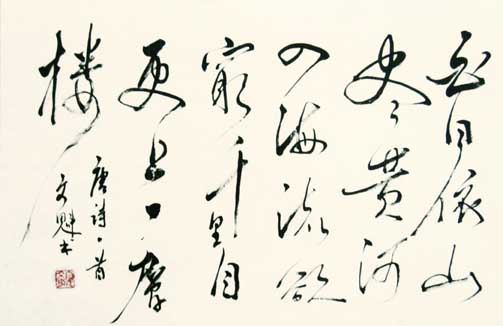 白日依山
尽黄河
入海流欲
窮千里目
更上一層
楼
唐詩一首
文魁书